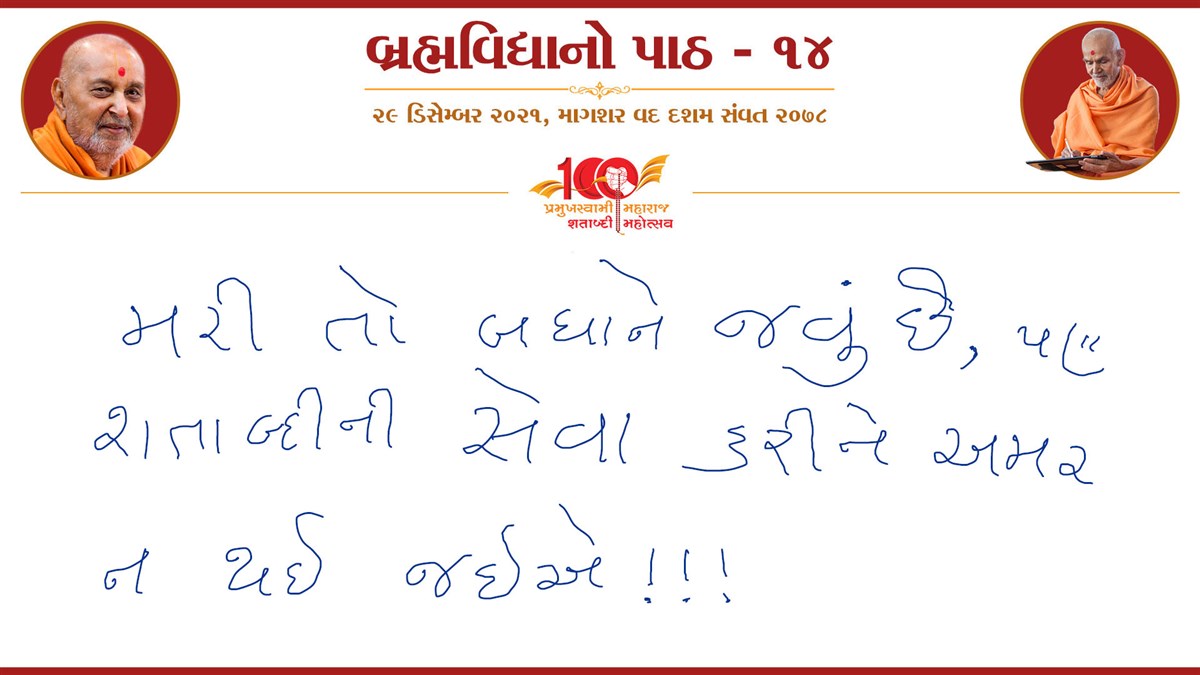 બ્રહ્મવિદ્યાનો પાઠ - ૧૪
૨૯ ડિસેમ્બર ૨૦૨૧, માગશર વદ દશમ સંવત ૨૦૭૮
100
પ્રમુખસ્વામી મહારાજ
શતાબ્દી મહોત્સવ
મરી તો બધાને જવું છે, પણ
શતાબ્દીની સેવા કરીને અમર
ન થઈ જઈએ !!!